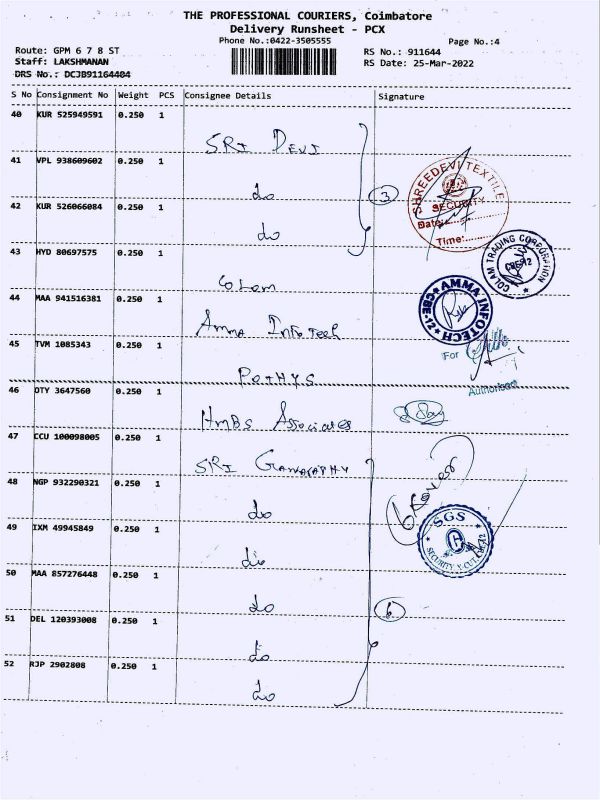 THE PROFESSIONAL COURIERS, Coimbatore
Delivery Runsheet - PCX
Phone No.:0422-3505555
Page No.:4
Route: GPM 6 7 8 ST
RS No.: 911644
Staff: LAKSHMANAN
RS Date: 25-Mar-2022
DRS No.: DCJB91164404
S No Consignment No Weight PCS Consignee Details Signature
40 KUR 525949591 0.250 1
SRI DEVI
41 VPL 938609602 0.250 1
do
3
SHREEDEVI TEXTILE
SECURITY
Date:
Time:
42 KUR 526066084 0.250 1
do
43 HYD 80697575 0.250 1
Colam
COLAM TRADING CORPORATION
44 MAA 941516381 0.250 1
Amma InfoTech
AMMA INFOTECH
CBE-12
45 TVM 1085343 0.250 1
For
POTHYS
Authorised
46 OTY 3647560 0.250 1
HMBS Associates
47 CCU 100098005 0.250 1
SRI GANAPATHY
48 NGP 932290321 0.250 1
do
SGS
SECURITY
49 IXM 49945849 0.250 1
do
50 MAA 857276448 0.250 1
do
6
51 DEL 120393008 0.250 1
do
52 RJP 2902808 0.250 1
do